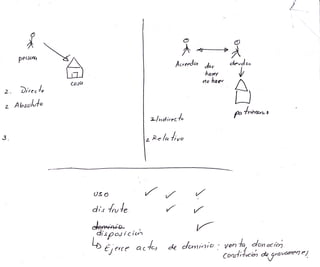 persona
casa
2. Directo
2 Absoluto
3.
Acreedor
dar
hacer
no hacer
deudor
patrimonio
2 Indirecto
2 Relativo
uso ✓ ✓ ✓
disfrute ✓ ✓
dominio
disposición ✓
↳ Ejerce actos de dominio: venta, donación
constitución de gravamenes